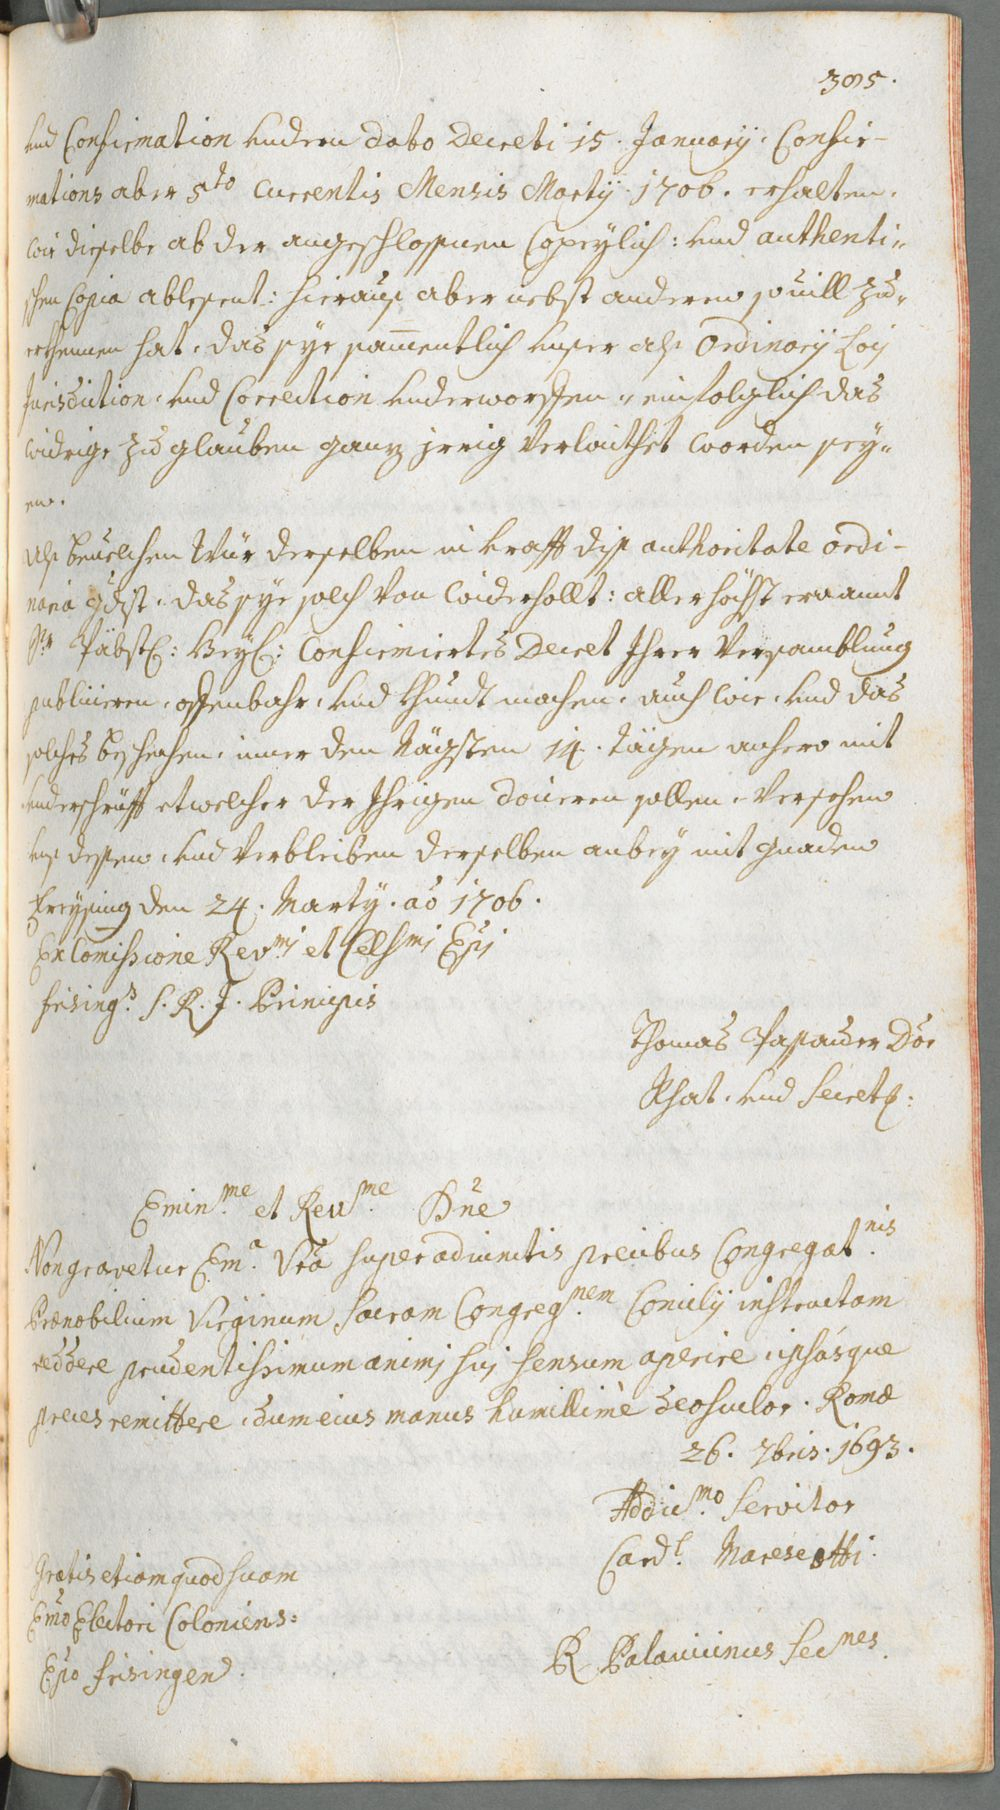 385.
und Confirmation undern dato Decreti 15. Januarÿ. Confir-
mations aber 5to Currentis Mensis Martÿ. 1706. erhalten.
wie dieselbe ab der angeschlossnen Copeylich: und authenti„
schen Copia ablesent: hierauß aber nebst anderen souill zu„
erkhennen hat, das sye sam̄entlich unser alß Ordinarÿ Loci
Jurisdiction, und Correction underworffen, einfolglich das
widrige zu glauben ganz jrrig verlaithet worden sey„
en.
Alß beuelchen Wür derselben in krafft diß authoritate ordi-
naria gdist, das sye solch von widerhollt: allerhöchst ernannt
Sr Päbstl: Heyl: Confirmiertes Decret Ihrer Versamblung
publicieren, offenbahr, und khundt machen, auch wie, und das
solches beschechen, inner den nägsten 14. tägen anhero mit
underschrüfft etwelcher der Ihrigen docieren sollen, Versechen
unß dessen, und verbleiben derselben anbey mit gnaden
Freysing den 24. Marty. ao 1706.
Ex Comissione Revmi et Celsmi Epi
frising.s S. R. I. Principis
Thomas Passauer Dor
Rhat, und Secret:
Emin.me et Reu.me Dne
Non gravetur Em.a Vra super adiunctis precibus Congregat.nis
Prænobilium Virginum sacram Congreg.nem Concilÿ instructam
reddere prudentissimum animi sui sensum aperire, ipsásque
preces remittere, dum eius manus humillimè deosculor. Romæ
26. 7bris. 1693.
Addic.mo Servitor
Card.l Marescotti.
Gratis etiam quod suam
Emo Electori Coloniens:
Epo frisingen.
R Palauicinus Secnes.